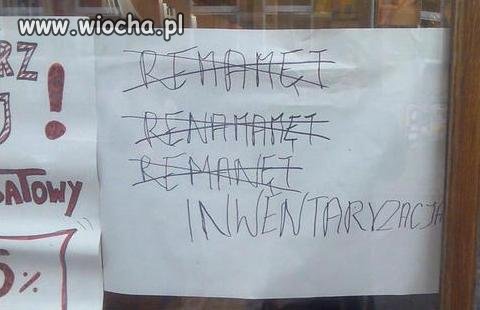 www.wiocha.pl
RZ
!
BATOWY
%
REMAMĘT
RENAMAMĘT
REMANĘT
INWENTARYZACJA